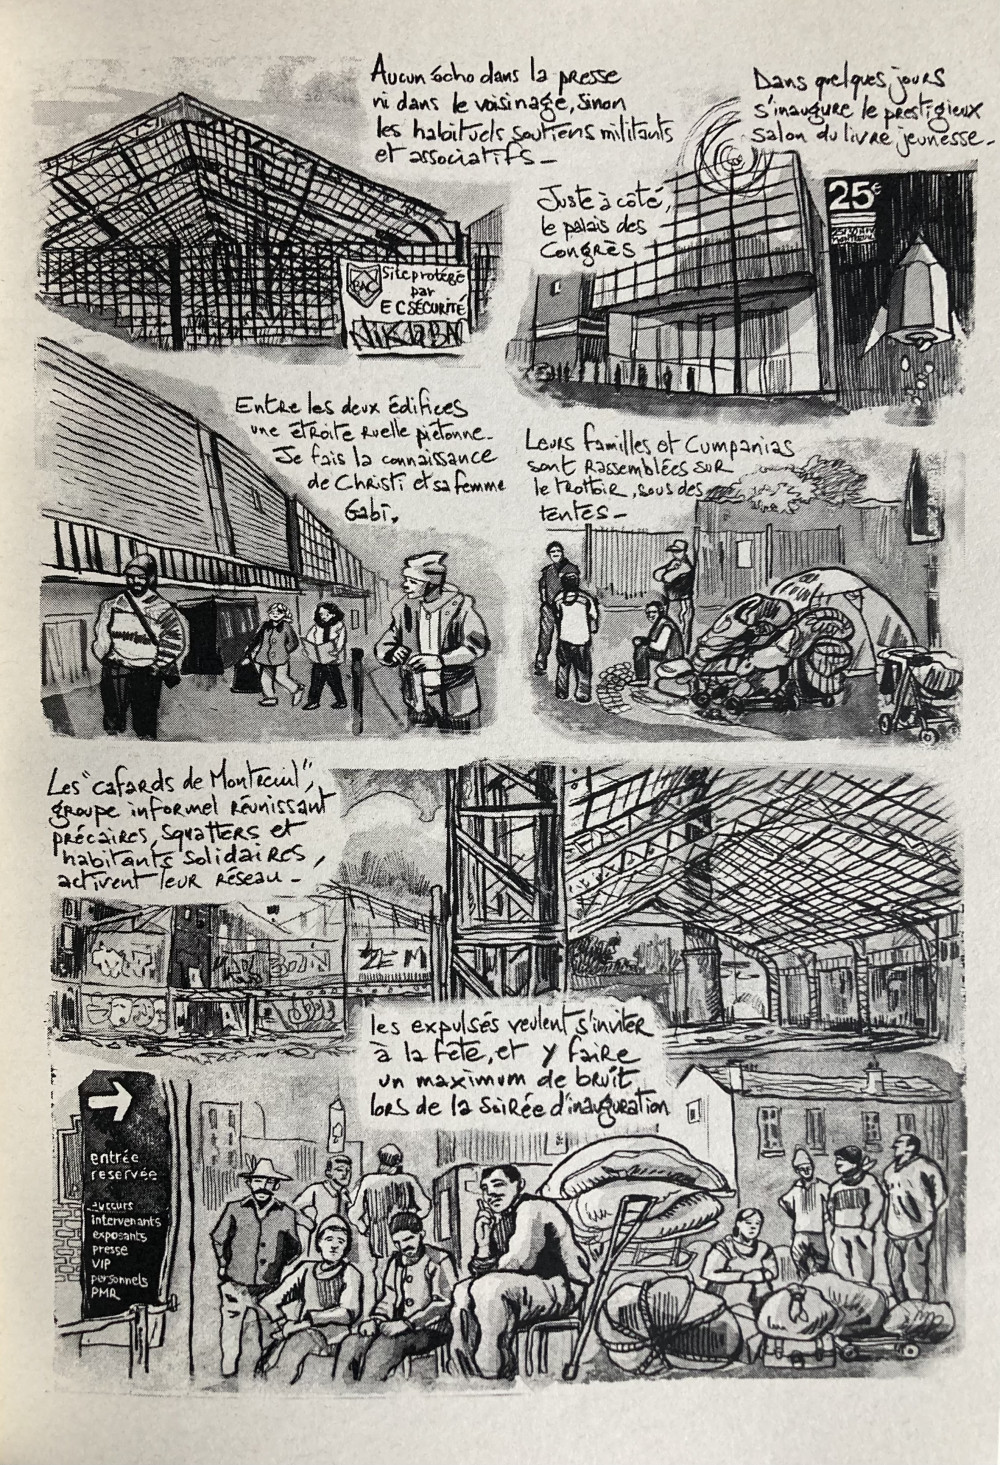 Aucun écho dans la presse
ni dans le voisinage, sinon
les habituels soutiens militants
et associatifs_
Dans quelques jours
s'inaugure le prestigieux
salon du livre jeunesse_
Juste à côté,
le palais des
Congrès
25€
BAC
Site protégé
par
EC SÉCURITÉ
Entre les deux édifices
une étroite ruelle piétonne_
Je fais la connaissance
de Christi et sa femme
Gabi.
Leurs familles et Cumpanias
sont rassemblées sur
le trottoir, sous des
tentes_
Les "cafards de Montreuil",
groupe informel réunissant
précaires, squatters et
habitants solidaires,
activent leur réseau_
les expulsés veulent s'inviter
à la fête, et y faire
un maximum de bruit
lors de la soirée d'inauguration
entrée
reservée
intervenants
exposants
presse
VIP
personnels
PMR